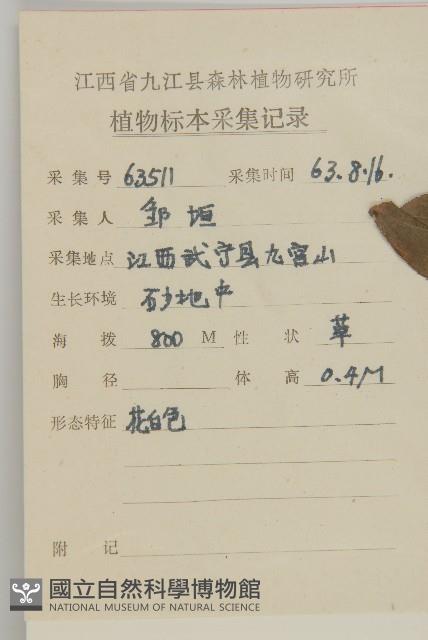 江西省九江县森林植物研究所
植物标本采集记录
采集号 63511 采集时间 63.8.16.
采集人 邹垣
采集地点 江西武宁县九宫山
生长环境 砂地中
海拨 800 M 性状 草
胸径 体高 0.4M
形态特征 花白色
附记
國立自然科學博物館
NATIONAL MUSEUM OF NATURAL SCIENCE